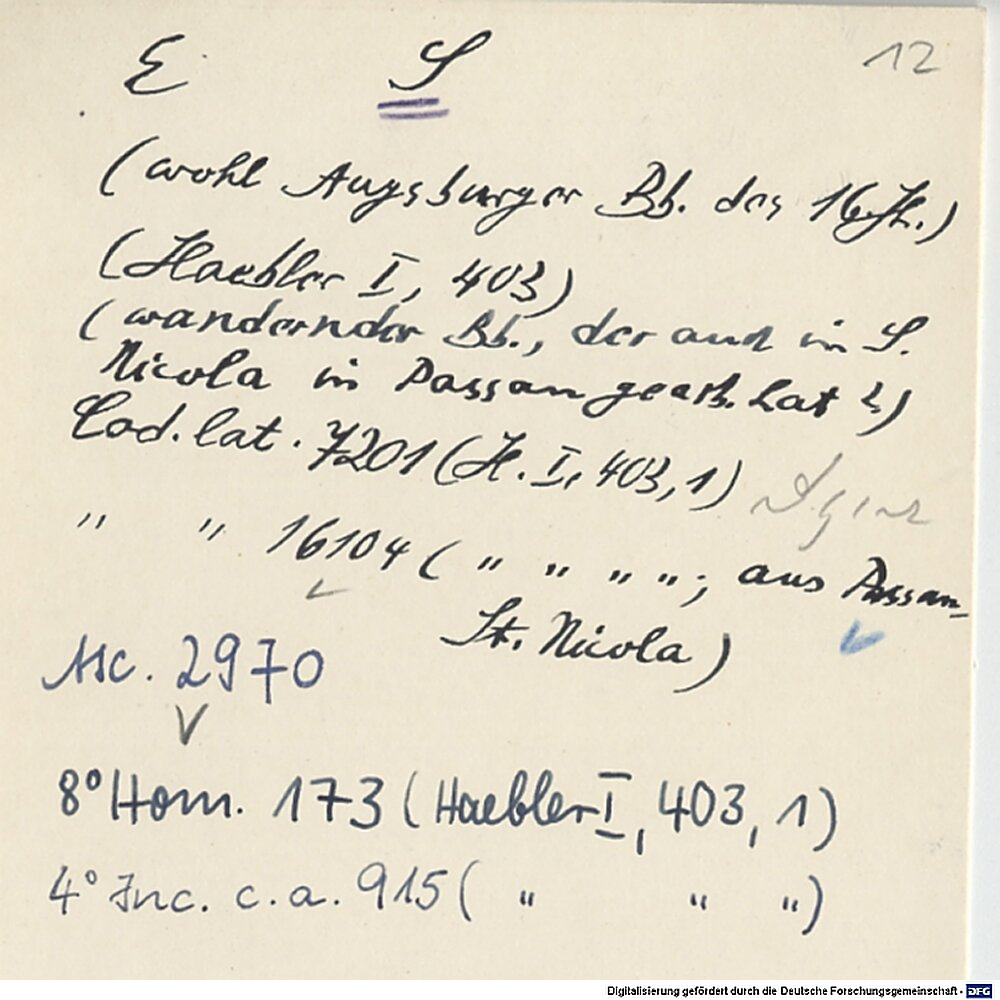 E S 12
(wohl Augsburger Bb. des 16. Jh.)
(Haebler I, 403)
(wandernder Bb., der auch in S.
Nicola in Passau gearb. hat?)
Cod. lat. 7201 (H. I, 403, 1)
" " 16104 ( " " " "; aus Passau-
St. Nicola)
Asc. 2970
8° Hom. 173 (Haebler I, 403, 1)
4° Inc. c. a. 915 ( " " ")
Digitalisierung gefördert durch die Deutsche Forschungsgemeinschaft - DFG